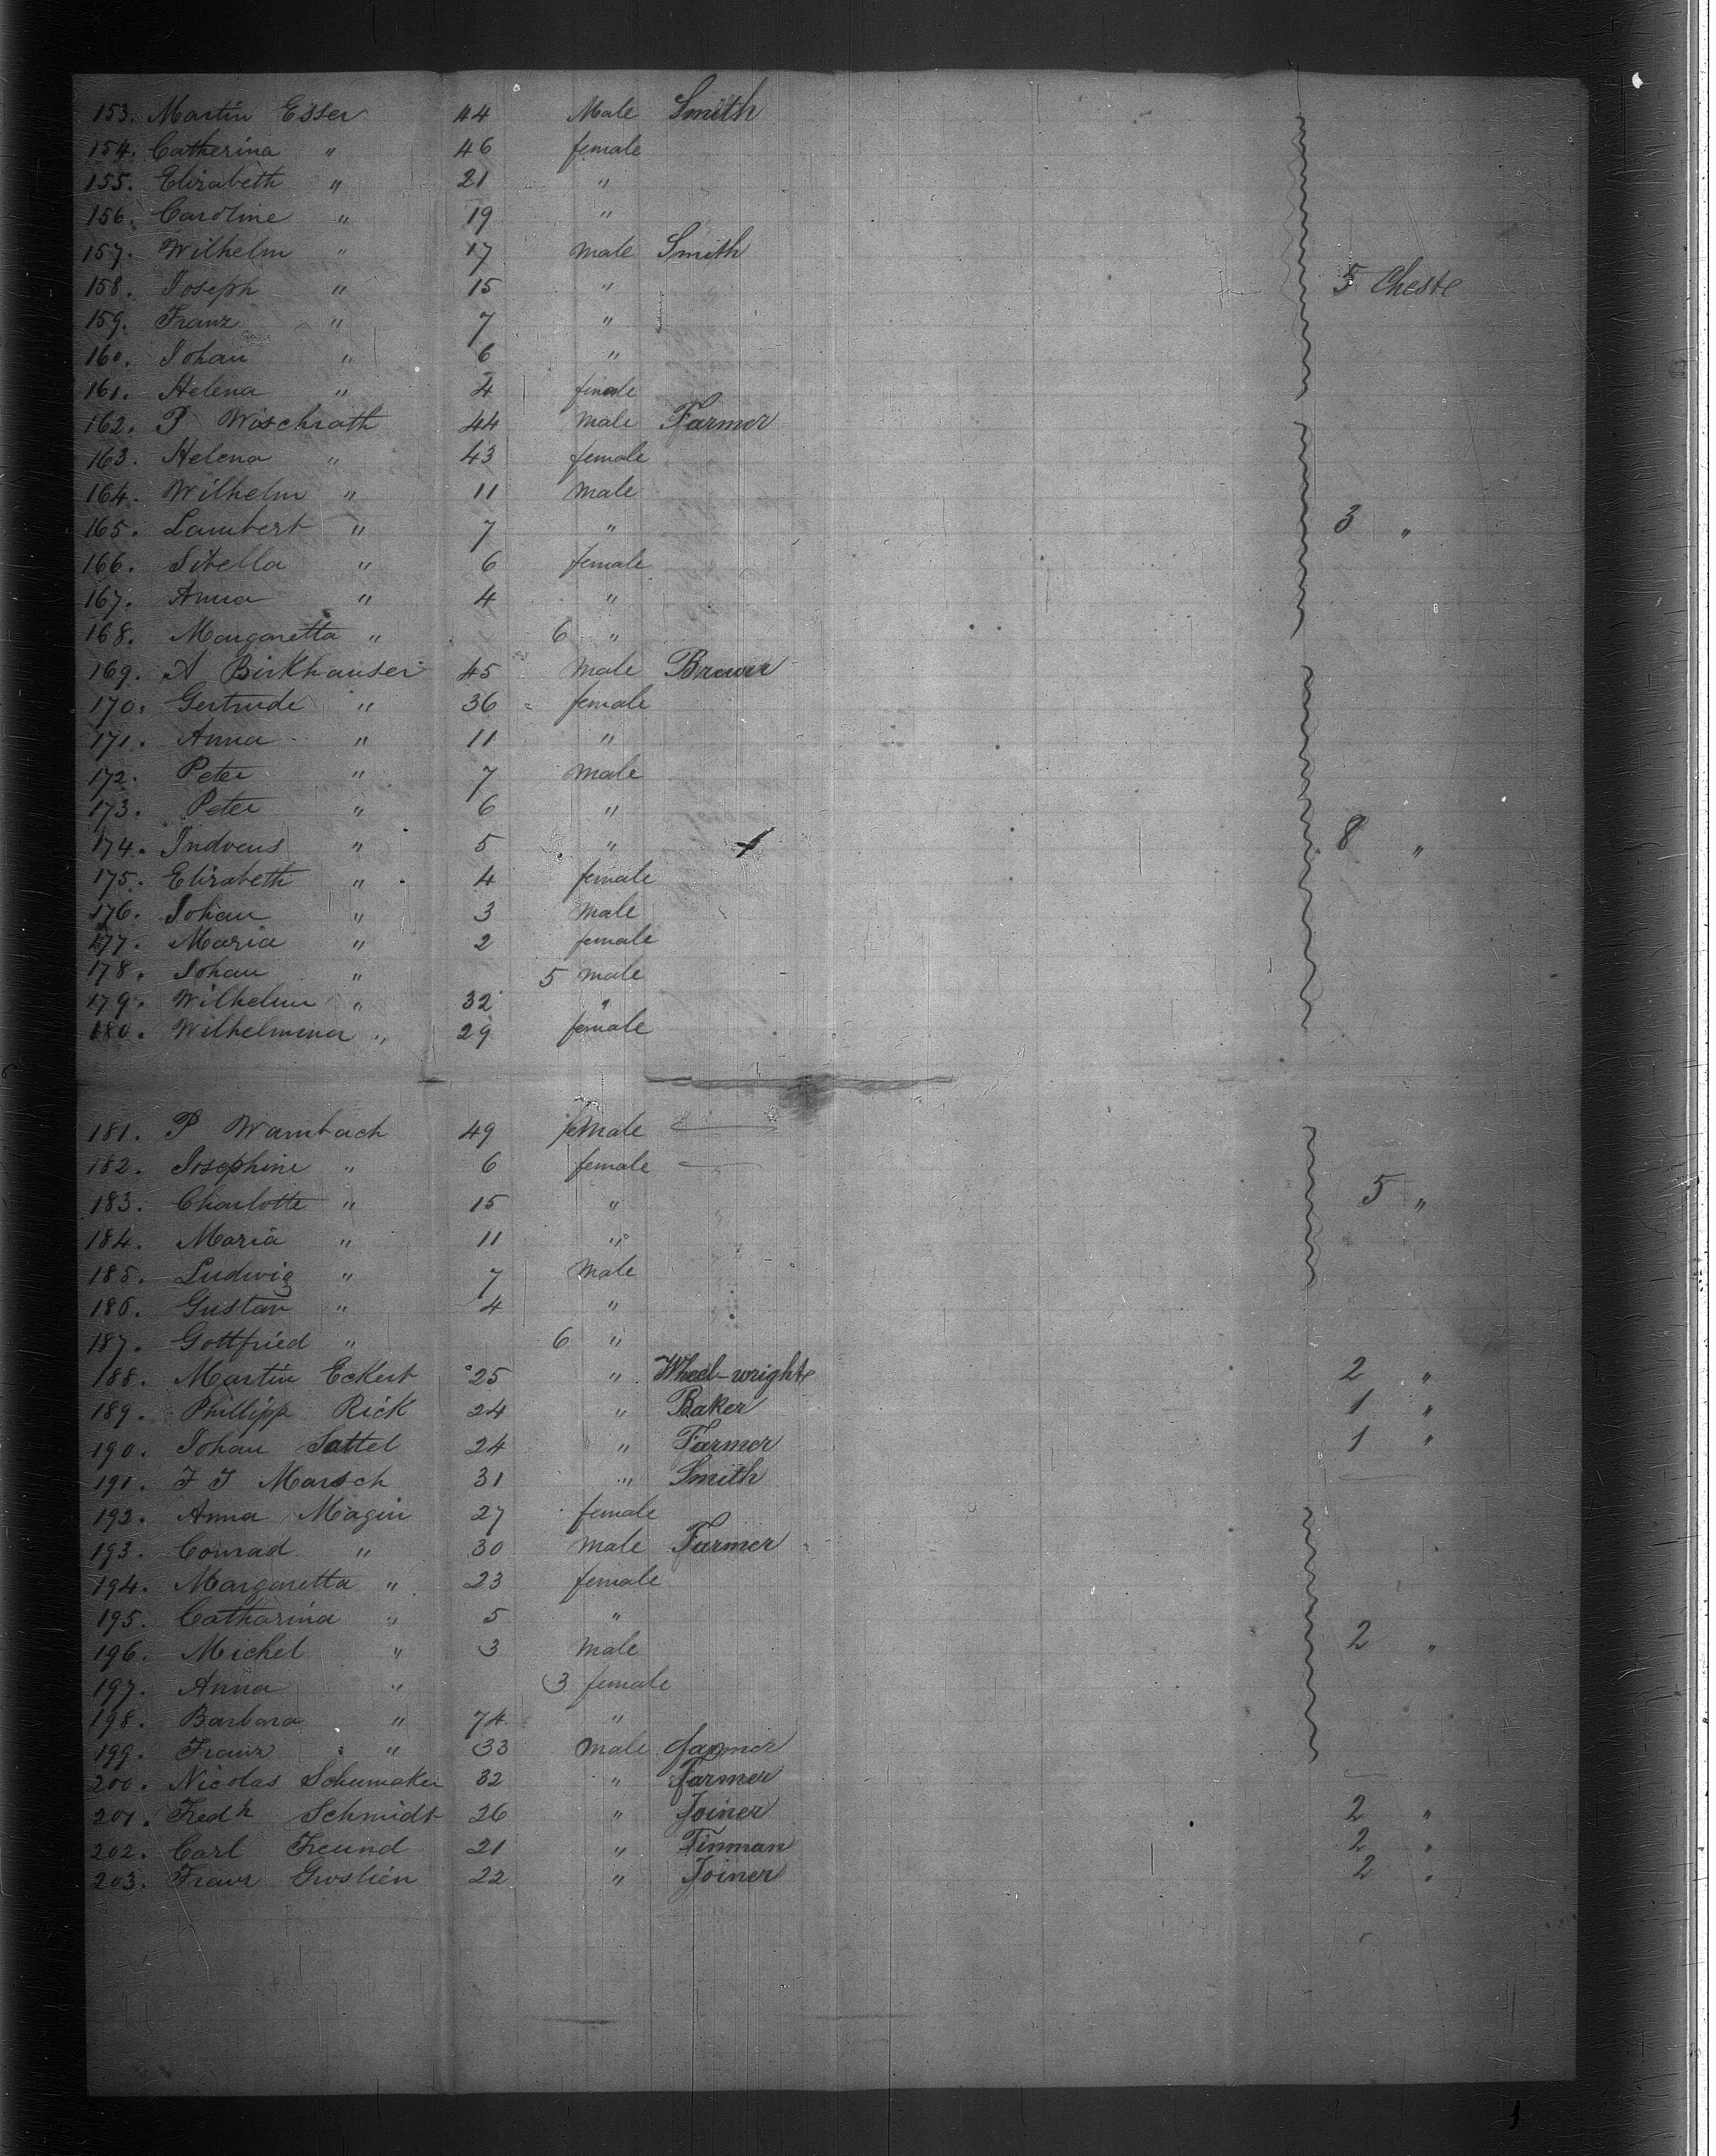 153. Martin Esser 44 Male Smith
154. Catherina " 46 female
155. Elizabeth " 21 "
156. Caroline " 19 "
157. Wilhelm " 17 male Smith
158. Joseph " 15 " 5 Cheste
159. Franz " 7 "
160. Johan " 6 "
161. Helena " 4 female
162. P Wischrath 44 male Farmer
163. Helena " 43 female
164. Wilhelm " 11 male
165. Lambert " 7 " 3 "
166. Sibella " 6 female
167. Anna " 4 "
168. Margaretta " 6 "
169. A Birkhauser 45 male Brewer
170. Gertrude " 36 female
171. Anna " 11 "
172. Peter " 7 male
173. Peter " 6 "
174. " 5 " 8 "
175. Elizabeth " 4 female
176. Johan " 3 male
177. Maria " 2 female
178. Johan " 5 male
179. Wilhelm " 32 "
180. Wilhelmina " 29 female
181. P Wambach 49 female
182. Josephine " 6 female
183. Charlotte " 15 " 5 "
184. Maria " 11 "
185. Ludwig " 7 male
186. Gustav " 4 "
187. Gottfried " 6 "
188. Martin Eckert 25 " Wheel-wright 2 "
189. Phillipp Rick 24 " Baker 1 "
190. Johan Sattel 24 " Farmer 1 "
191. J J Marsch 31 " Smith
192. Anna Magin 27 female
193. Conrad " 30 male Farmer
194. Margaretta " 23 female
195. Catharina " 5 "
196. Michel " 3 male 2 "
197. Anna " 3 female
198. Barbara " 74 "
199. Franz " 33 male farmer
200. Nicolas Schumaker 32 " farmer
201. Fredk Schmidt 26 " Joiner 2 "
202. Carl Freund 21 " Tinman 2 "
203. Franz 22 " Joiner 2 "